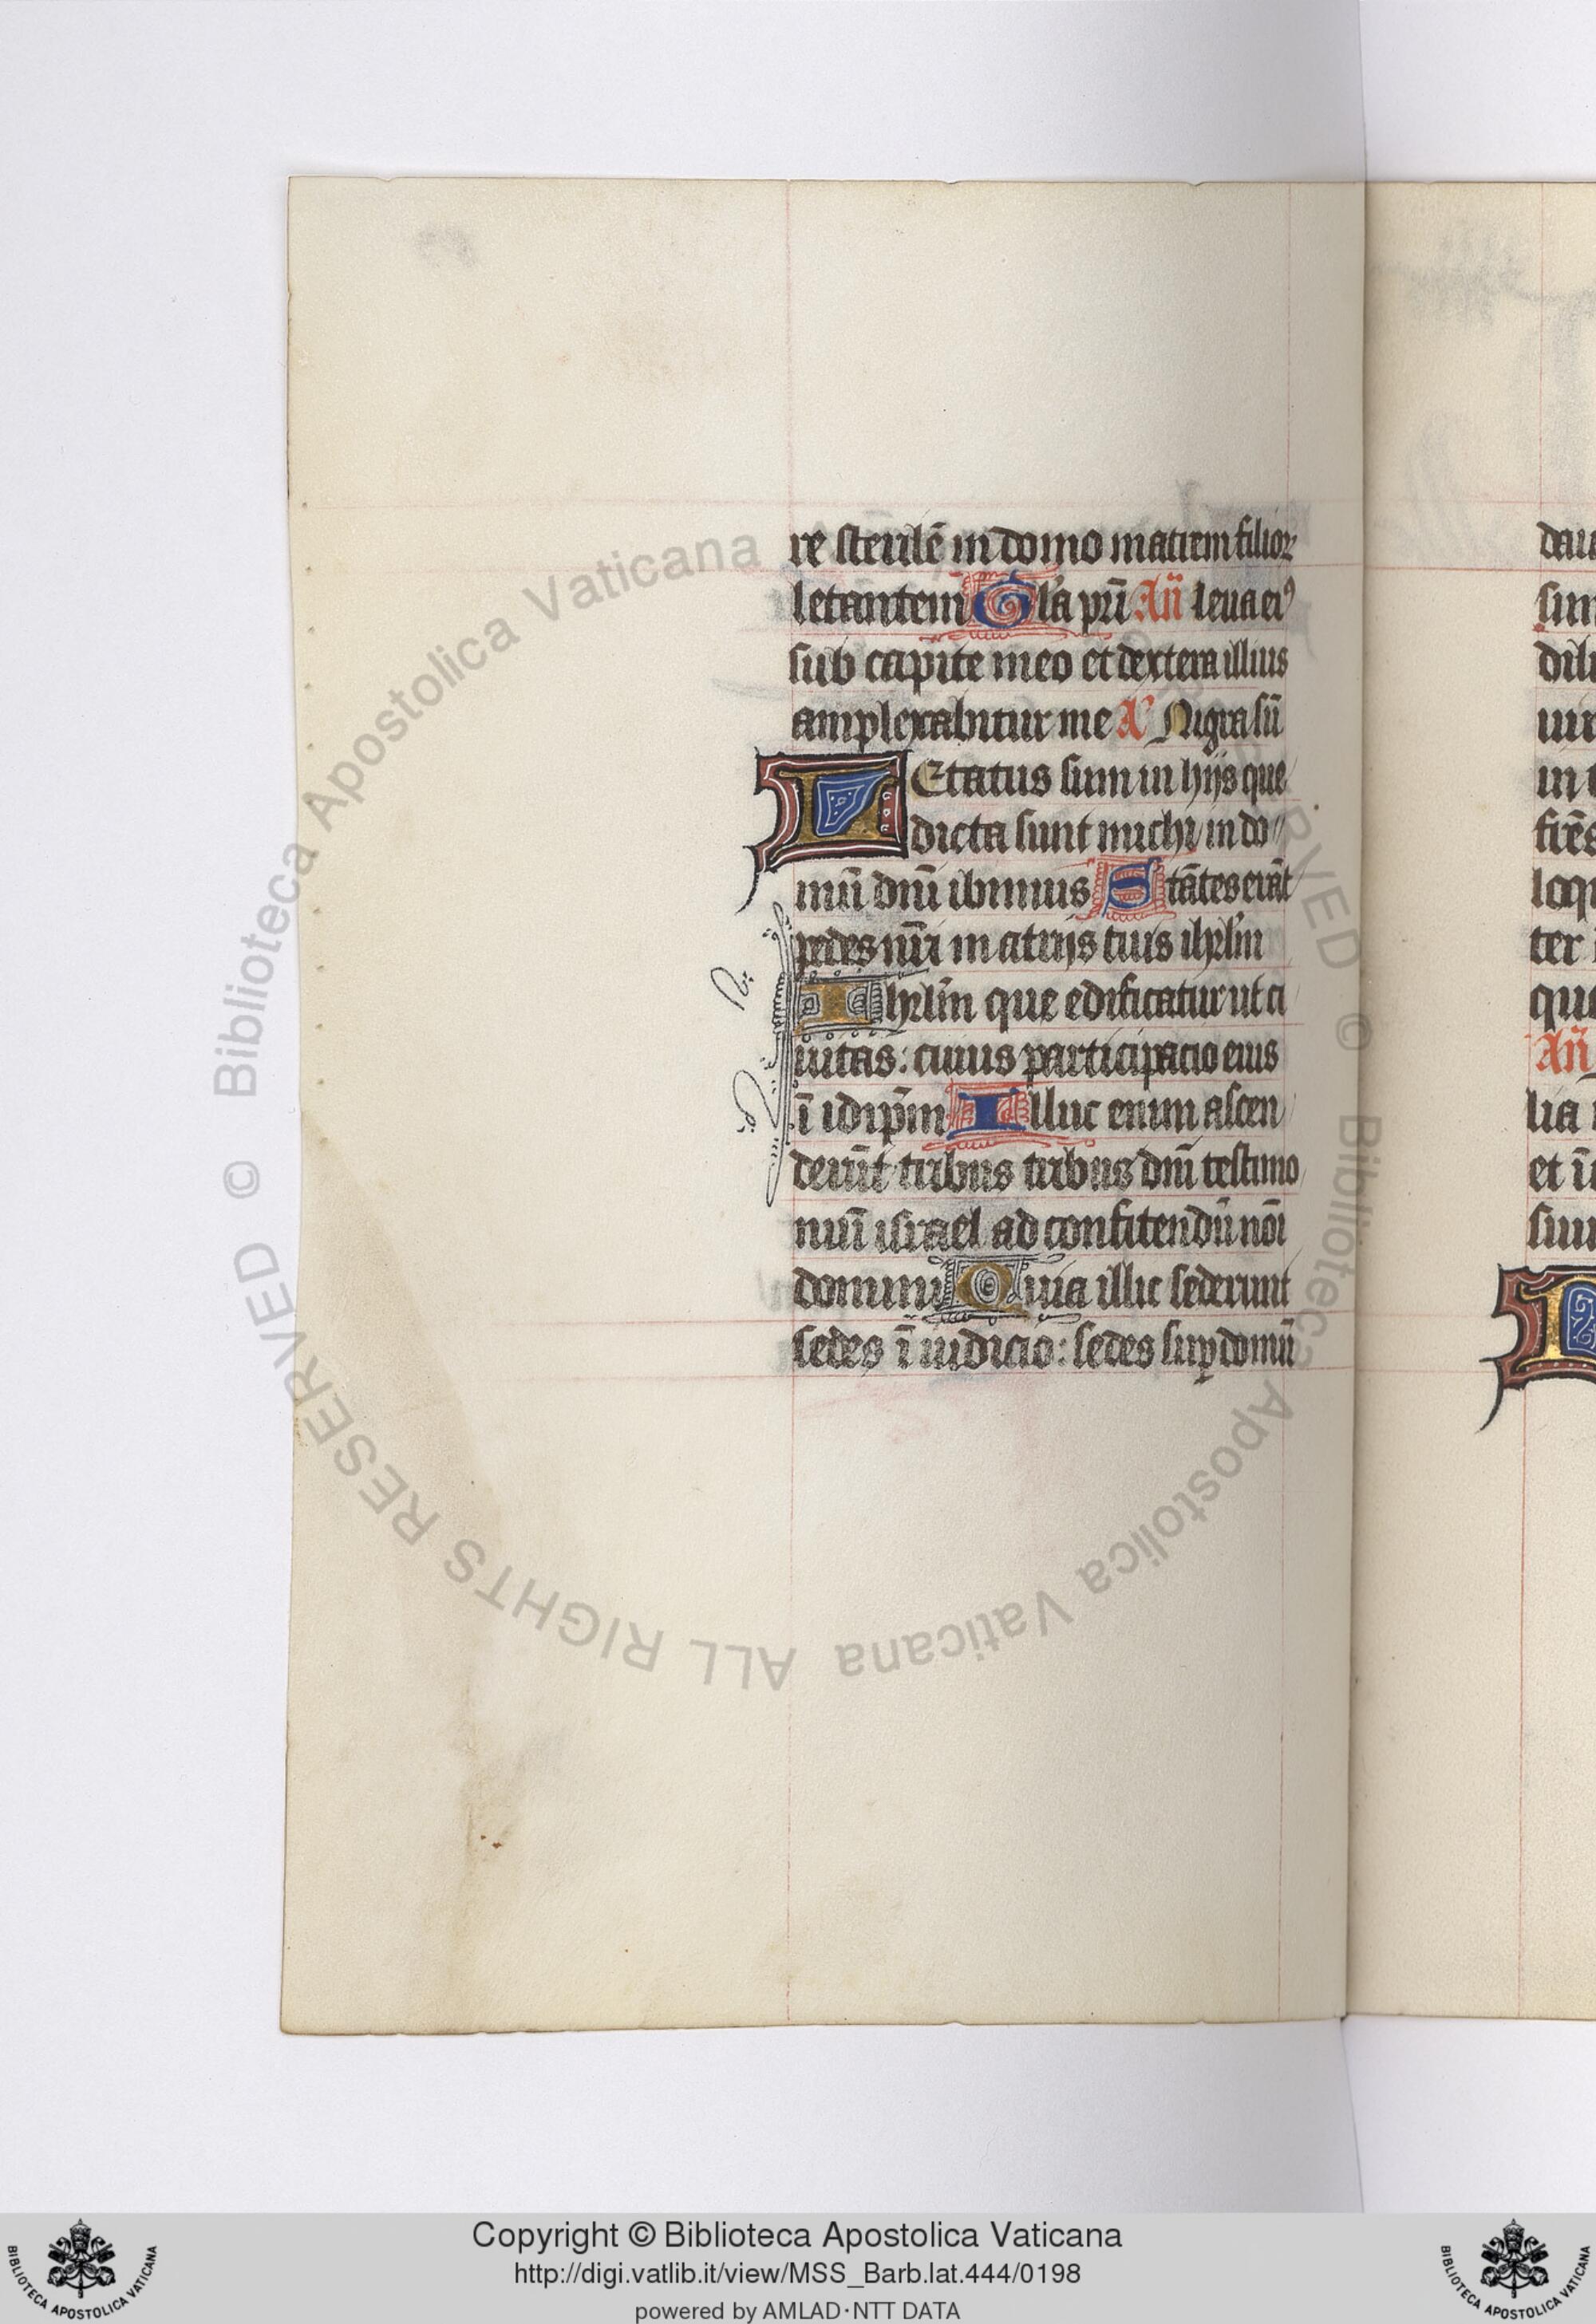 re sterilē in domo matrem filioꝝ
letantem Gl'a pr̄i An̄ leua ei⁹
sub capite meo et dextera illius
amplexabitur me A' Nigra sū
LEtatus sum in hijs que
dicta sunt michi in do-
mū dn̄i ibimus Stātes erāt
pedes nr̄i in atrijs tuis ihrl'm
Ihrl'm que edificatur ut ci
uitas: cuius participacio eius
ī idip̄m Illuc enim ascen
derūt tribus tribus dn̄i testimo
niū israel ad confitendū nōi
domini Quia illic sederunt
sedes ī iudicio: sedes suꝑ domū
daui
sun
dili
uir
in t
frēs
loq
ter
que
An̄
lia
et ī
sun
Biblioteca Apostolica Vaticana
ALL RIGHTS RESERVED © Biblioteca Apostolica Vaticana
RVED © Biblioteca Apostolica Vaticana
Copyright © Biblioteca Apostolica Vaticana
http://digi.vatlib.it/view/MSS_Barb.lat.444/0198
powered by AMLAD·NTT DATA
BIBLIOTECA APOSTOLICA VATICANA
BIBLIOTECA APOSTOLICA VATICANA